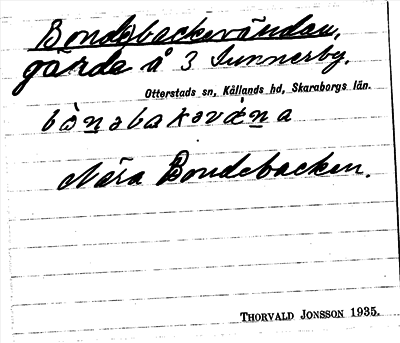 Bondebackevändan,
gärde å 3 Sunnerby.
Otterstads sn, Kållands hd, Skaraborgs län.
Nära Bondebacken.
THORVALD JONSSON 1935.